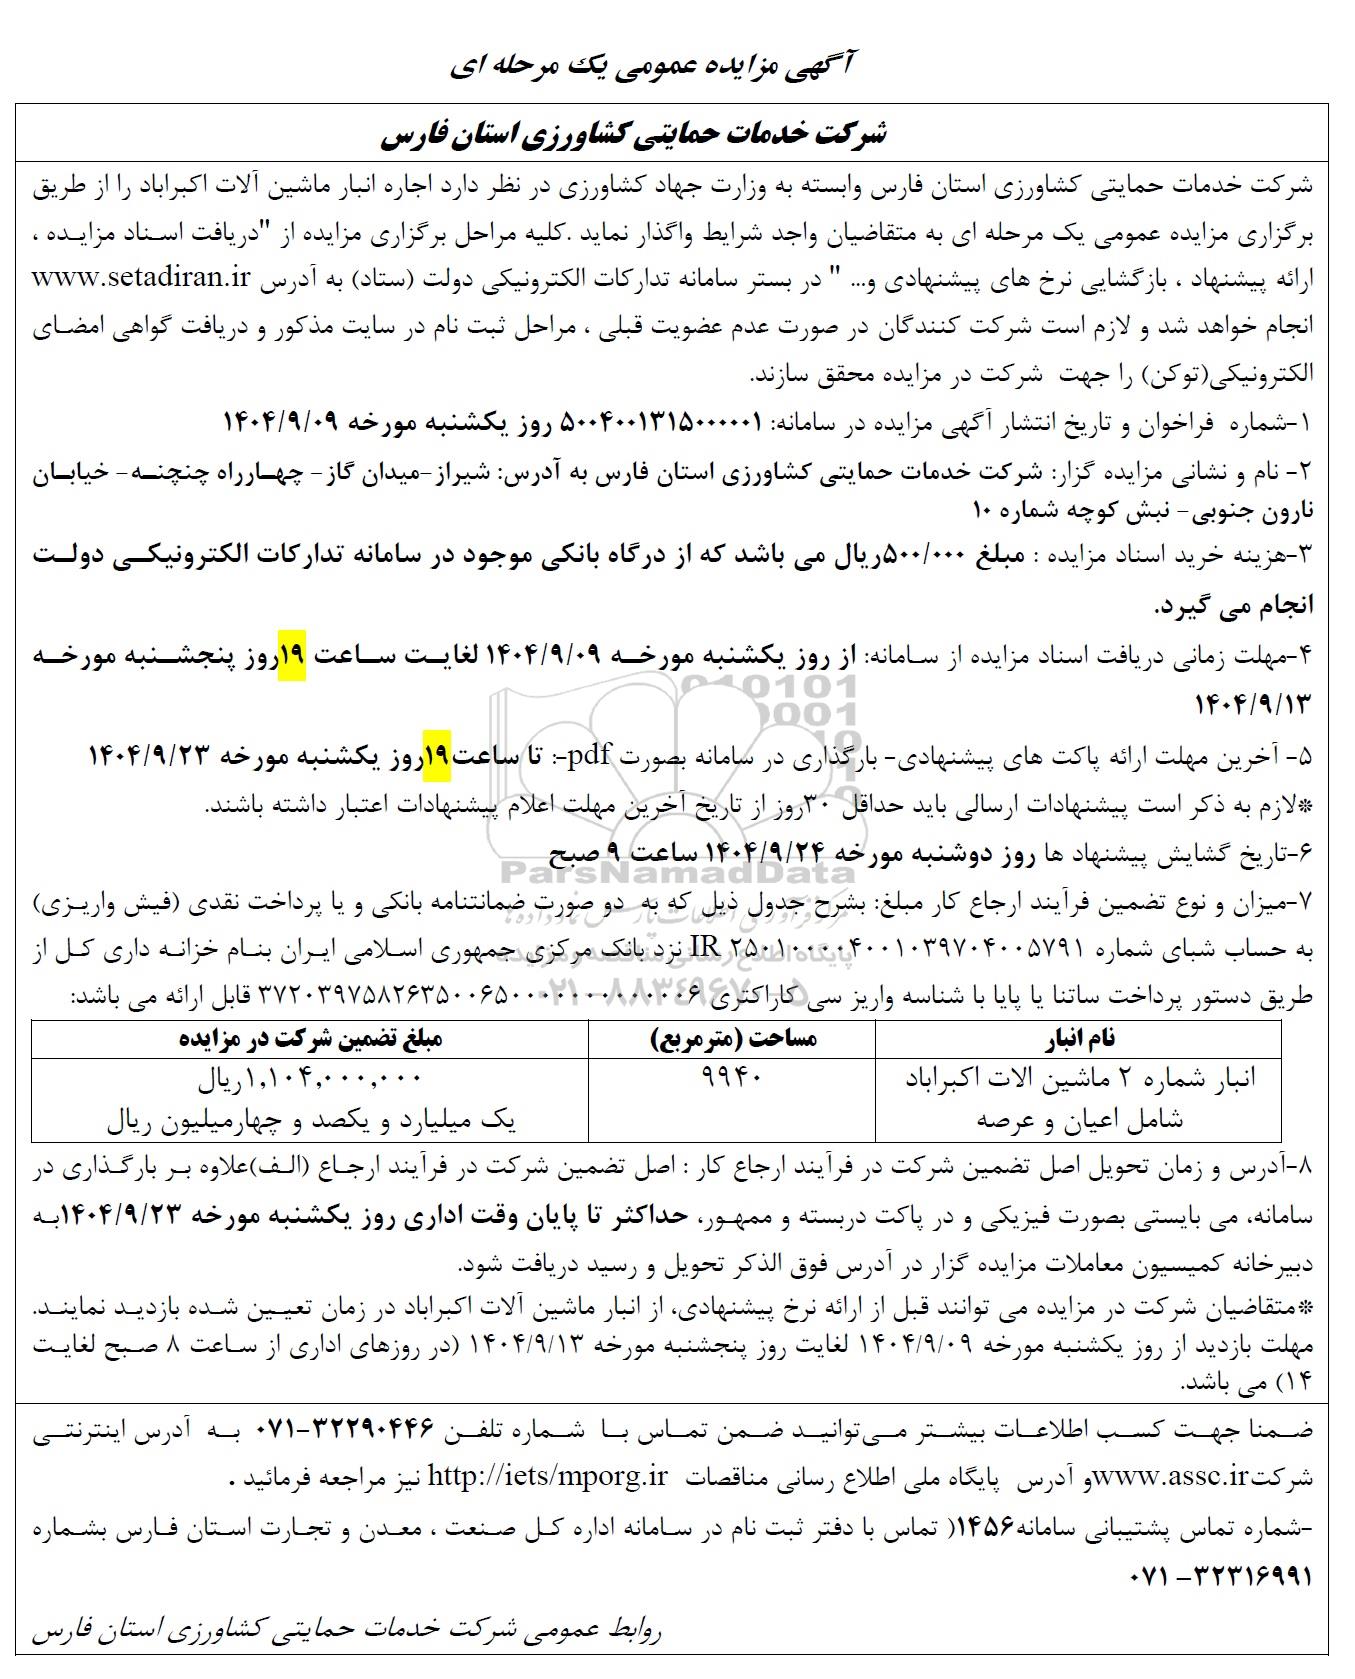 آگهی مزایده عمومی یک مرحله ای
شرکت خدمات حمایتی کشاورزی استان فارس
شرکت خدمات حمایتی کشاورزی استان فارس وابسته به وزارت جهاد کشاورزی در نظر دارد اجاره انبار ماشین آلات اکبراباد را از طریق
برگزاری مزایده عمومی یک مرحله ای به متقاضیان واجد شرایط واگذار نماید .کلیه مراحل برگزاری مزایده از "دریافت اسناد مزایده ،
ارائه پیشنهاد ، بازگشایی نرخ های پیشنهادی و... " در بستر سامانه تدارکات الکترونیکی دولت (ستاد) به آدرس www.setadiran.ir
انجام خواهد شد و لازم است شرکت کنندگان در صورت عدم عضویت قبلی ، مراحل ثبت نام در سایت مذکور و دریافت گواهی امضای
الکترونیکی(توکن) را جهت شرکت در مزایده محقق سازند.
۱-شماره فراخوان و تاریخ انتشار آگهی مزایده در سامانه: ۵۰۰۴۰۰۱۳۱۵۰۰۰۰۰۱ روز یکشنبه مورخه ۱۴۰۴/۹/۰۹
۲- نام و نشانی مزایده گزار: شرکت خدمات حمایتی کشاورزی استان فارس به آدرس: شیراز-میدان گاز- چهارراه چنچنه- خیابان
نارون جنوبی- نبش کوچه شماره ۱۰
۳-هزینه خرید اسناد مزایده : مبلغ ۵۰۰/۰۰۰ریال می باشد که از درگاه بانکی موجود در سامانه تدارکات الکترونیکی دولت
انجام می گیرد.
۴-مهلت زمانی دریافت اسناد مزایده از سامانه: از روز یکشنبه مورخه ۱۴۰۴/۹/۰۹ لغایت ساعت ۱۹روز پنجشنبه مورخه
۱۴۰۴/۹/۱۳
۵- آخرین مهلت ارائه پاکت های پیشنهادی- بارگذاری در سامانه بصورت pdf-: تا ساعت۱۹روز یکشنبه مورخه ۱۴۰۴/۹/۲۳
*لازم به ذکر است پیشنهادات ارسالی باید حداقل ۳۰روز از تاریخ آخرین مهلت اعلام پیشنهادات اعتبار داشته باشند.
۶-تاریخ گشایش پیشنهاد ها روز دوشنبه مورخه ۱۴۰۴/۹/۲۴ ساعت ۹ صبح
ParsNamadData
۷-میزان و نوع تضمین فرآیند ارجاع کار مبلغ: بشرح جدول ذیل که به دو صورت ضمانتنامه بانکی و یا پرداخت نقدی (فیش واریزی)
به حساب شبای شماره IR ۲۵۰۱۰۰۰۰۴۰۰۱۰۳۹۷۰۴۰۰۵۷۹۱ نزد بانک مرکزی جمهوری اسلامی ایران بنام خزانه داری کل از
پایگاه اطلاع رسانی مناقصه و مزایده
طریق دستور پرداخت ساتنا یا پایا با شناسه واریز سی کاراکتری ۳۷۲۰۳۹۷۵۸۲۶۳۵۰۰۶۵۰۰۰۰۰۰۰۰۰۰۰۰۶ قابل ارائه می باشد:
۰۲۱-۸۸۳۴۹۶۷۰-۵
نام انبار	مساحت (مترمربع)	مبلغ تضمین شرکت در مزایده
انبار شماره ۲ ماشین الات اکبراباد	۹۹۴۰	۱,۱۰۴,۰۰۰,۰۰۰ریال
شامل اعیان و عرصه	یک میلیارد و یکصد و چهارمیلیون ریال
۸-آدرس و زمان تحویل اصل تضمین شرکت در فرآیند ارجاع کار : اصل تضمین شرکت در فرآیند ارجاع (الف)علاوه بر بارگذاری در
سامانه، می بایستی بصورت فیزیکی و در پاکت دربسته و ممهور، حداکثر تا پایان وقت اداری روز یکشنبه مورخه ۱۴۰۴/۹/۲۳به
دبیرخانه کمیسیون معاملات مزایده گزار در آدرس فوق الذکر تحویل و رسید دریافت شود.
*متقاضیان شرکت در مزایده می توانند قبل از ارائه نرخ پیشنهادی، از انبار ماشین آلات اکبراباد در زمان تعیین شده بازدید نمایند.
مهلت بازدید از روز یکشنبه مورخه ۱۴۰۴/۹/۰۹ لغایت روز پنجشنبه مورخه ۱۴۰۴/۹/۱۳ (در روزهای اداری از ساعت ۸ صبح لغایت
۱۴) می باشد.
ضمنا جهت کسب اطلاعات بیشتر می‌توانید ضمن تماس با شماره تلفن ۳۲۲۹۰۴۴۶-۰۷۱ به آدرس اینترنتی
شرکتwww.assc.irو آدرس پایگاه ملی اطلاع رسانی مناقصات http://iets/mporg.ir نیز مراجعه فرمائید .
-شماره تماس پشتیبانی سامانه۱۴۵۶( تماس با دفتر ثبت نام در سامانه اداره کل صنعت ، معدن و تجارت استان فارس بشماره
۳۲۳۱۶۹۹۱- ۰۷۱
روابط عمومی شرکت خدمات حمایتی کشاورزی استان فارس